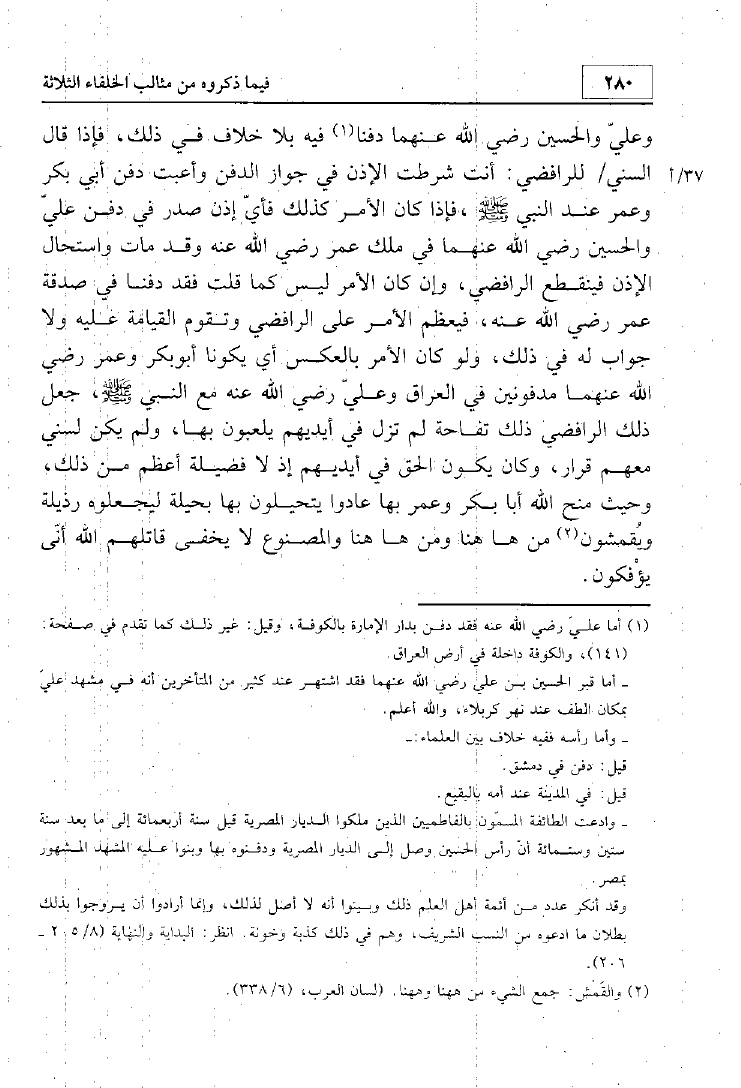 ٢٨٠
فيما ذكروه من مثالب الخلفاء الثلاثة
وعليّ والحسين رضي الله عنهما دفنا(١) فيه بلا خلاف في ذلك، فإذا قال
٣٧/أ
السني/ للرافضي: أنت شرطت الإذن في جواز الدفن وأعبت دفن أبي بكر
وعمر عند النبي ﷺ ،فإذا كان الأمر كذلك فأيّ إذن صدر في دفن عليّ
والحسين رضي الله عنهما في ملك عمر رضي الله عنه وقد مات واستحال
الإذن فينقطع الرافضي، وإن كان الأمر ليس كما قلت فقد دفنا في صدقة
عمر رضي الله عنه، فيعظم الأمر على الرافضي وتقوم القيامة عليه ولا
جواب له في ذلك، ولو كان الأمر بالعكس أي يكونا أبوبكر وعمر رضي
الله عنهما مدفونين في العراق وعليّ رضي الله عنه مع النبي ﷺ، جعل
ذلك الرافضي ذلك تفاحة لم تزل في أيديهم يلعبون بها، ولم يكن لسني
معهم قرار، وكان يكون الحق في أيديهم إذ لا فضيلة أعظم من ذلك،
وحيث منح الله أبا بكر وعمر بها عادوا يتحيلون بها بحيلة ليجعلوه رذيلة
ويُقمشون(٢) من ها هنا ومن ها هنا والمصنوع لا يخفى قاتلهم الله أنّى
يؤفكون.
(١) أما عليّ رضي الله عنه فقد دفن بدار الإمارة بالكوفة، وقيل: غير ذلك كما تقدم في صفحة:
(١٤١)، والكوفة داخلة في أرض العراق.
ـ أما قبر الحسين بن علي رضي الله عنهما فقد اشتهر عند كثير من المتأخرين أنه في مشهد عليّ
بمكان الطف عند نهر كربلاء، والله أعلم.
ـ وأما رأسه ففيه خلاف بين العلماء:ـ
قيل: دفن في دمشق.
قيل: في المدينة عند أمه بالبقيع.
ـ وادعت الطائفة المسمّون بالفاطميين الذين ملكوا الديار المصرية قبل سنة أربعمائة إلى ما بعد سنة
ستين وستمائة أنّ رأس الحسين وصل إلى الديار المصرية ودفنوه بها وبنوا عليه المشهد المشهور
بمصر.
وقد أنكر عدد من أئمة أهل العلم ذلك وبينوا أنه لا أصل لذلك، وإنما أرادوا أن يروجوا بذلك
بطلان ما ادعوه من النسب الشريف، وهم في ذلك كذبة وخونة. انظر: البداية والنهاية (٢٠٥/٨ ـ
٢٠٦).
(٢) والقَمْش: جمع الشيء من ههنا وههنا. (لسان العرب، (٣٣٨/٦).